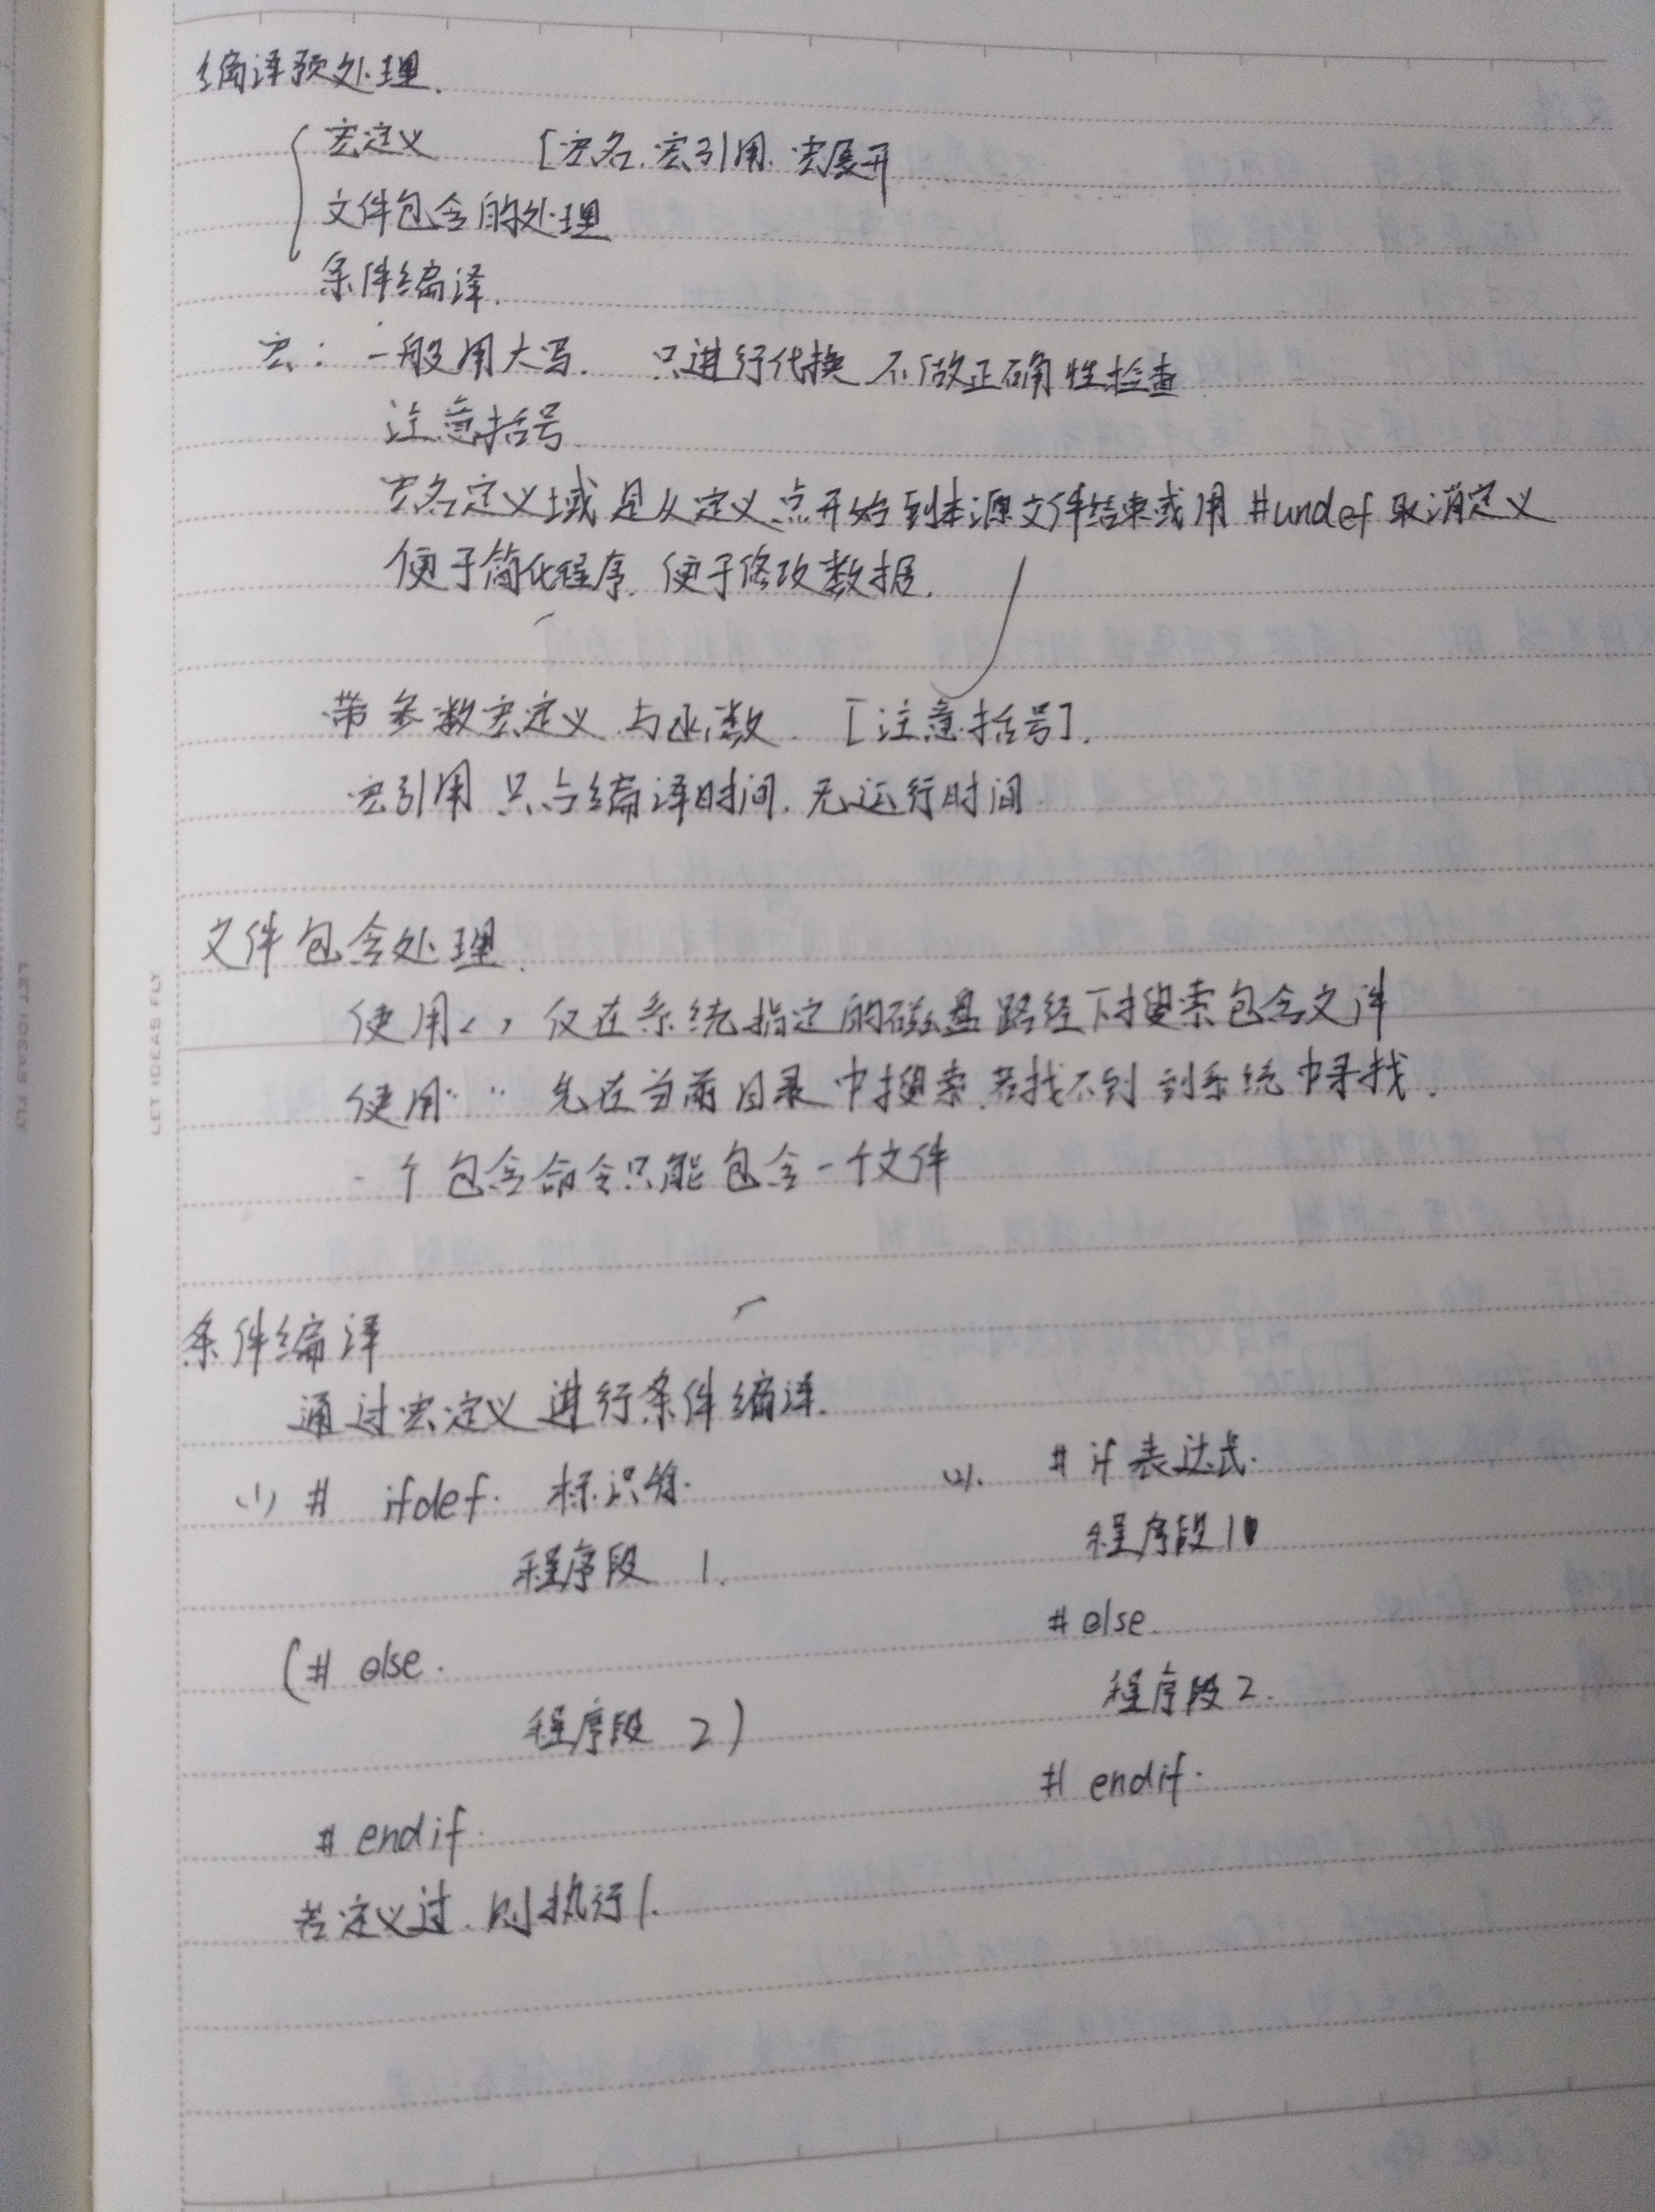 编译预处理.
宏定义 [宏名. 宏引用. 宏展开
文件包含的处理
条件编译.
宏: 一般用大写. 只进行代换 不做正确性检查
注意括号
宏名定义域是从定义点开始到本源文件结束或用 #undef 取消定义
便于简化程序. 便于修改数据.
带参数宏定义与函数. [注意括号].
宏引用 只占编译时间. 无运行时间
文件包含处理.
使用< > 仅在系统指定的磁盘路经下搜索包含文件
使用" " 先在当前目录中搜索.若找不到 到系统中寻找.
一个包含命令只能包含一个文件
条件编译
通过宏定义进行条件编译.
(1) # ifdef. 标识符.
程序段 1.
(# else.
程序段 2)
# endif.
若定义过.则执行1.
(2). # if 表达式.
程序段1
# else.
程序段2.
# endif.
LET IDEAS FLY
LET IDEAS FLY